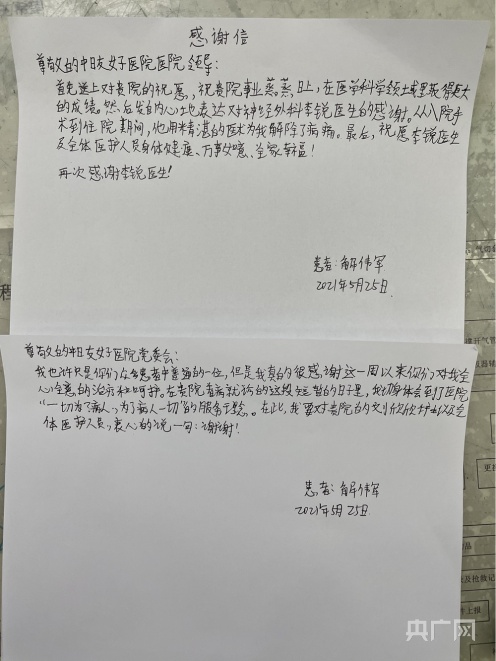 感谢信
尊敬的中日友好医院医院领导：
首先送上对贵院的祝愿，祝贵院事业蒸蒸日上，在医学科学领域里取得巨大
的成绩。然后发自内心地表达对神经外科李锐医生的感谢。从入院手
术到住院期间，他用精湛的医术为我解除了病痛。最后，祝愿李锐医生
及全体医护人员身体健康、万事如意、全家幸福！
再次感谢李锐医生！
患者：解伟军
2021年5月25日
尊敬的中日友好医院党委会：
我也许只是你们众多患者中普通的一位，但是我真的很感谢这一周以来你们对我全
心全意的治疗和呵护。在贵院看病就诊的这段短暂的日子里，我切身体会到了医院
“一切为了病人，为了病人一切”的服务主题。在此，我要对贵院的刘欣欣护士以及全
体医护人员，衷心的说一句：谢谢！
患者：解伟军
2021年5月25日
程
更换
品
及抢救记
件上报
央广网